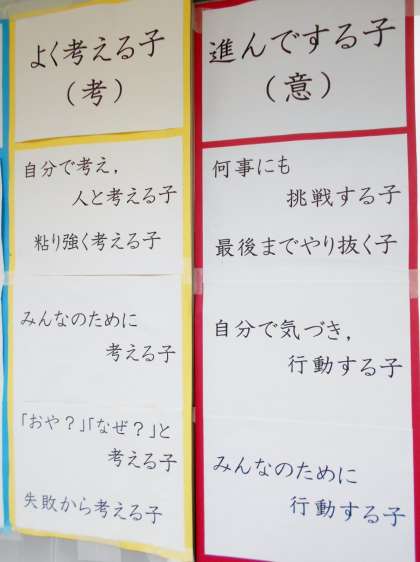 よく考える子
（考）
自分で考え，
人と考える子
粘り強く考える子
みんなのために
考える子
「おや？」「なぜ？」と
考える子
失敗から考える子
進んでする子
（意）
何事にも
挑戦する子
最後までやり抜く子
自分で気づき，
行動する子
みんなのために
行動する子